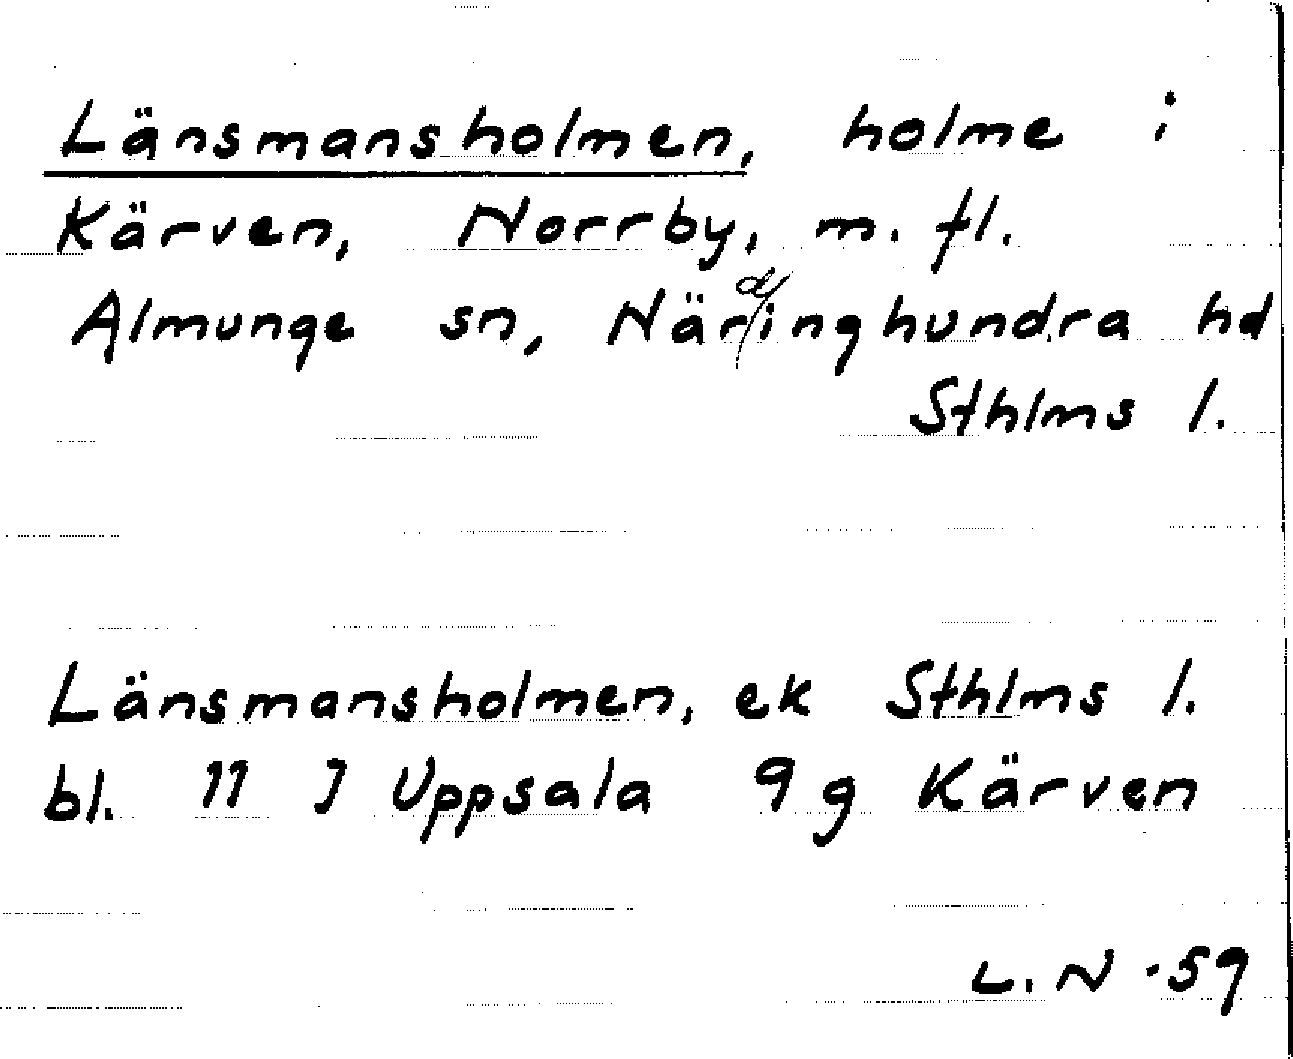 Länsmansholmen, holme i
Kärven, Norrby, m. fl.
Almunge sn, Närdinghundra hd
Sthlms l.
Länsmansholmen, ek Sthlms l.
bl. 11 I Uppsala 9g Kärven
L. N -59